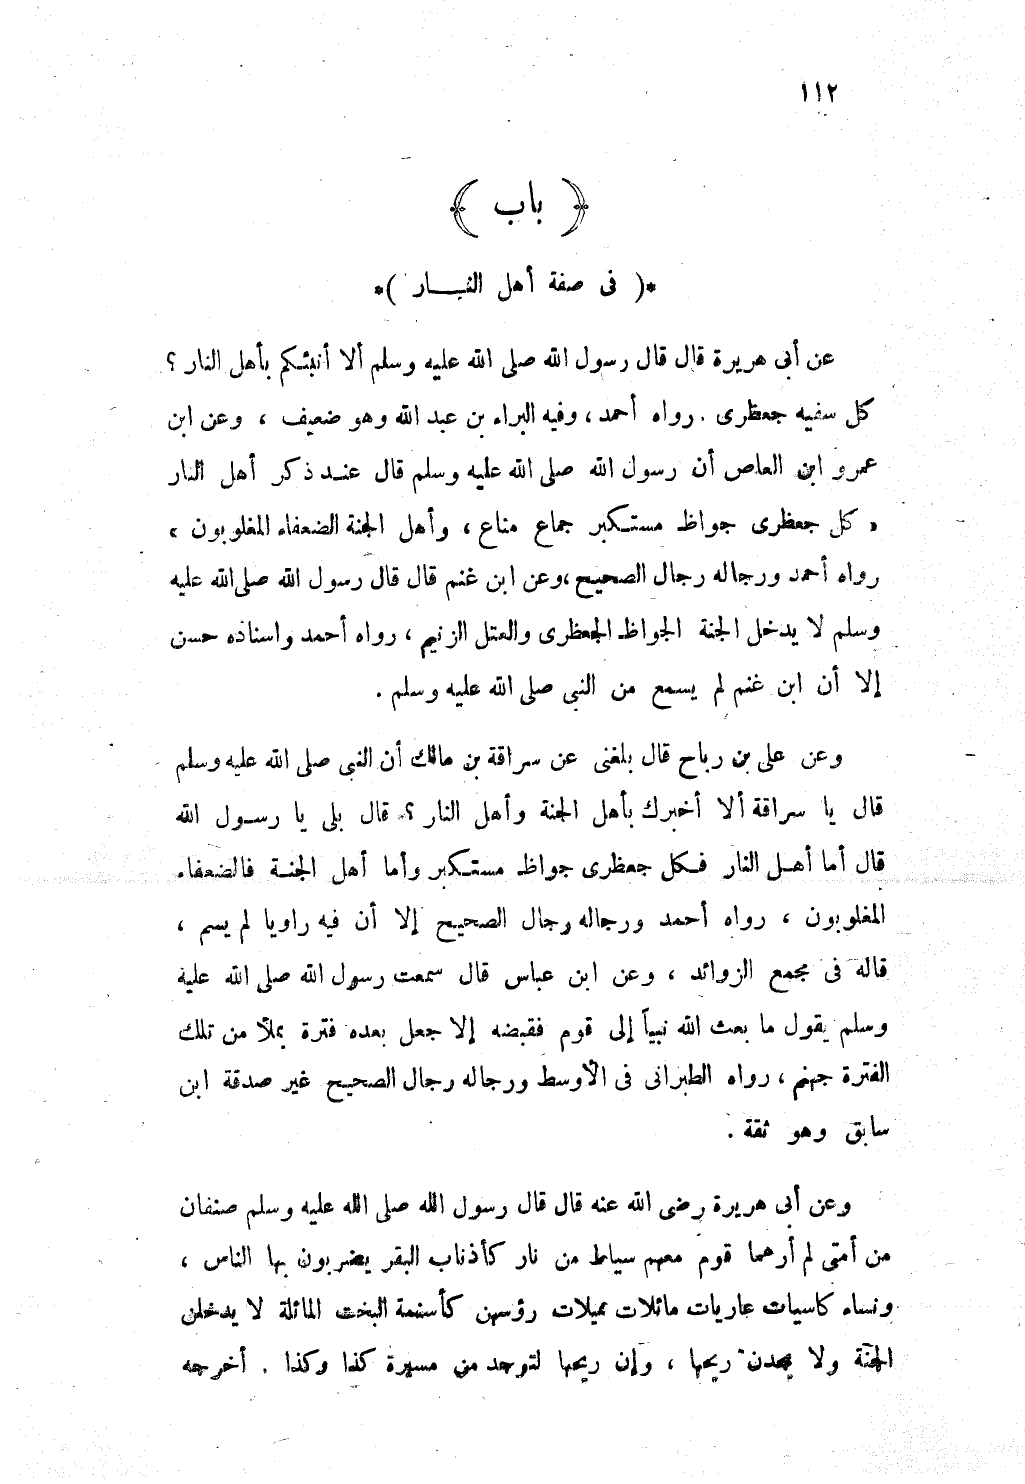 ١١٢
﴿ باب ﴾
*( فى صفة أهل النـــار )*
عن أبى هريرة قال قال رسول الله صلى الله عليه وسلم ألا أنبئكم بأهل النار ؟
كل سفيه جعظرى . رواه أحمد ، وفيه البراء بن عبد الله وهو ضعيف ، وعن ابن
عمرو ابن العاص أن رسول الله صلى الله عليه وسلم قال عند ذكر أهل النار
« كل جعظرى جواظ مستكبر جماع مناع ، وأهل الجنة الضعفاء المغلوبون »
رواه أحمد ورجاله رجال الصحيح ، وعن ابن غنم قال قال رسول الله صلى الله عليه
وسلم لا يدخل الجنة الجواظ الجعظرى والعتل الزنيم ، رواه أحمد واسناده حسن
إلا أن ابن غنم لم يسمع من النبى صلى الله عليه وسلم .
وعن على بن رباح قال بلغنى عن سراقة بن مالك أن النبى صلى الله عليه وسلم
قال يا سراقة ألا أخبرك بأهل الجنة وأهل النار ؟ قال بلى يا رسول الله
قال أما أهل النار فكل جعظرى جواظ مستكبر وأما أهل الجنة فالضعفاء
المغلوبون ، رواه أحمد ورجاله رجال الصحيح إلا أن فيه راويا لم يسم ،
قاله فى مجمع الزوائد ، وعن ابن عباس قال سمعت رسول الله صلى الله عليه
وسلم يقول ما بعث الله نبياً إلى قوم فقبضه إلا جعل بعده فترة يملأ من تلك
الفترة جهنم ، رواه الطبرانى فى الأوسط ورجاله رجال الصحيح غير صدقة ابن
سابق وهو ثقة .
وعن أبى هريرة رضى الله عنه قال قال رسول الله صلى الله عليه وسلم صنفان
من أمتى لم أرهما قوم معهم سياط من نار كأذناب البقر يضربون بها الناس ،
ونساء كاسيات عاريات مائلات مميلات رؤسهن كأسنمة البخت المائلة لا يدخلن
الجنة ولا يجدن ريحها ، وإن ريحها لتوجد من مسيرة كذا وكذا . أخرجه